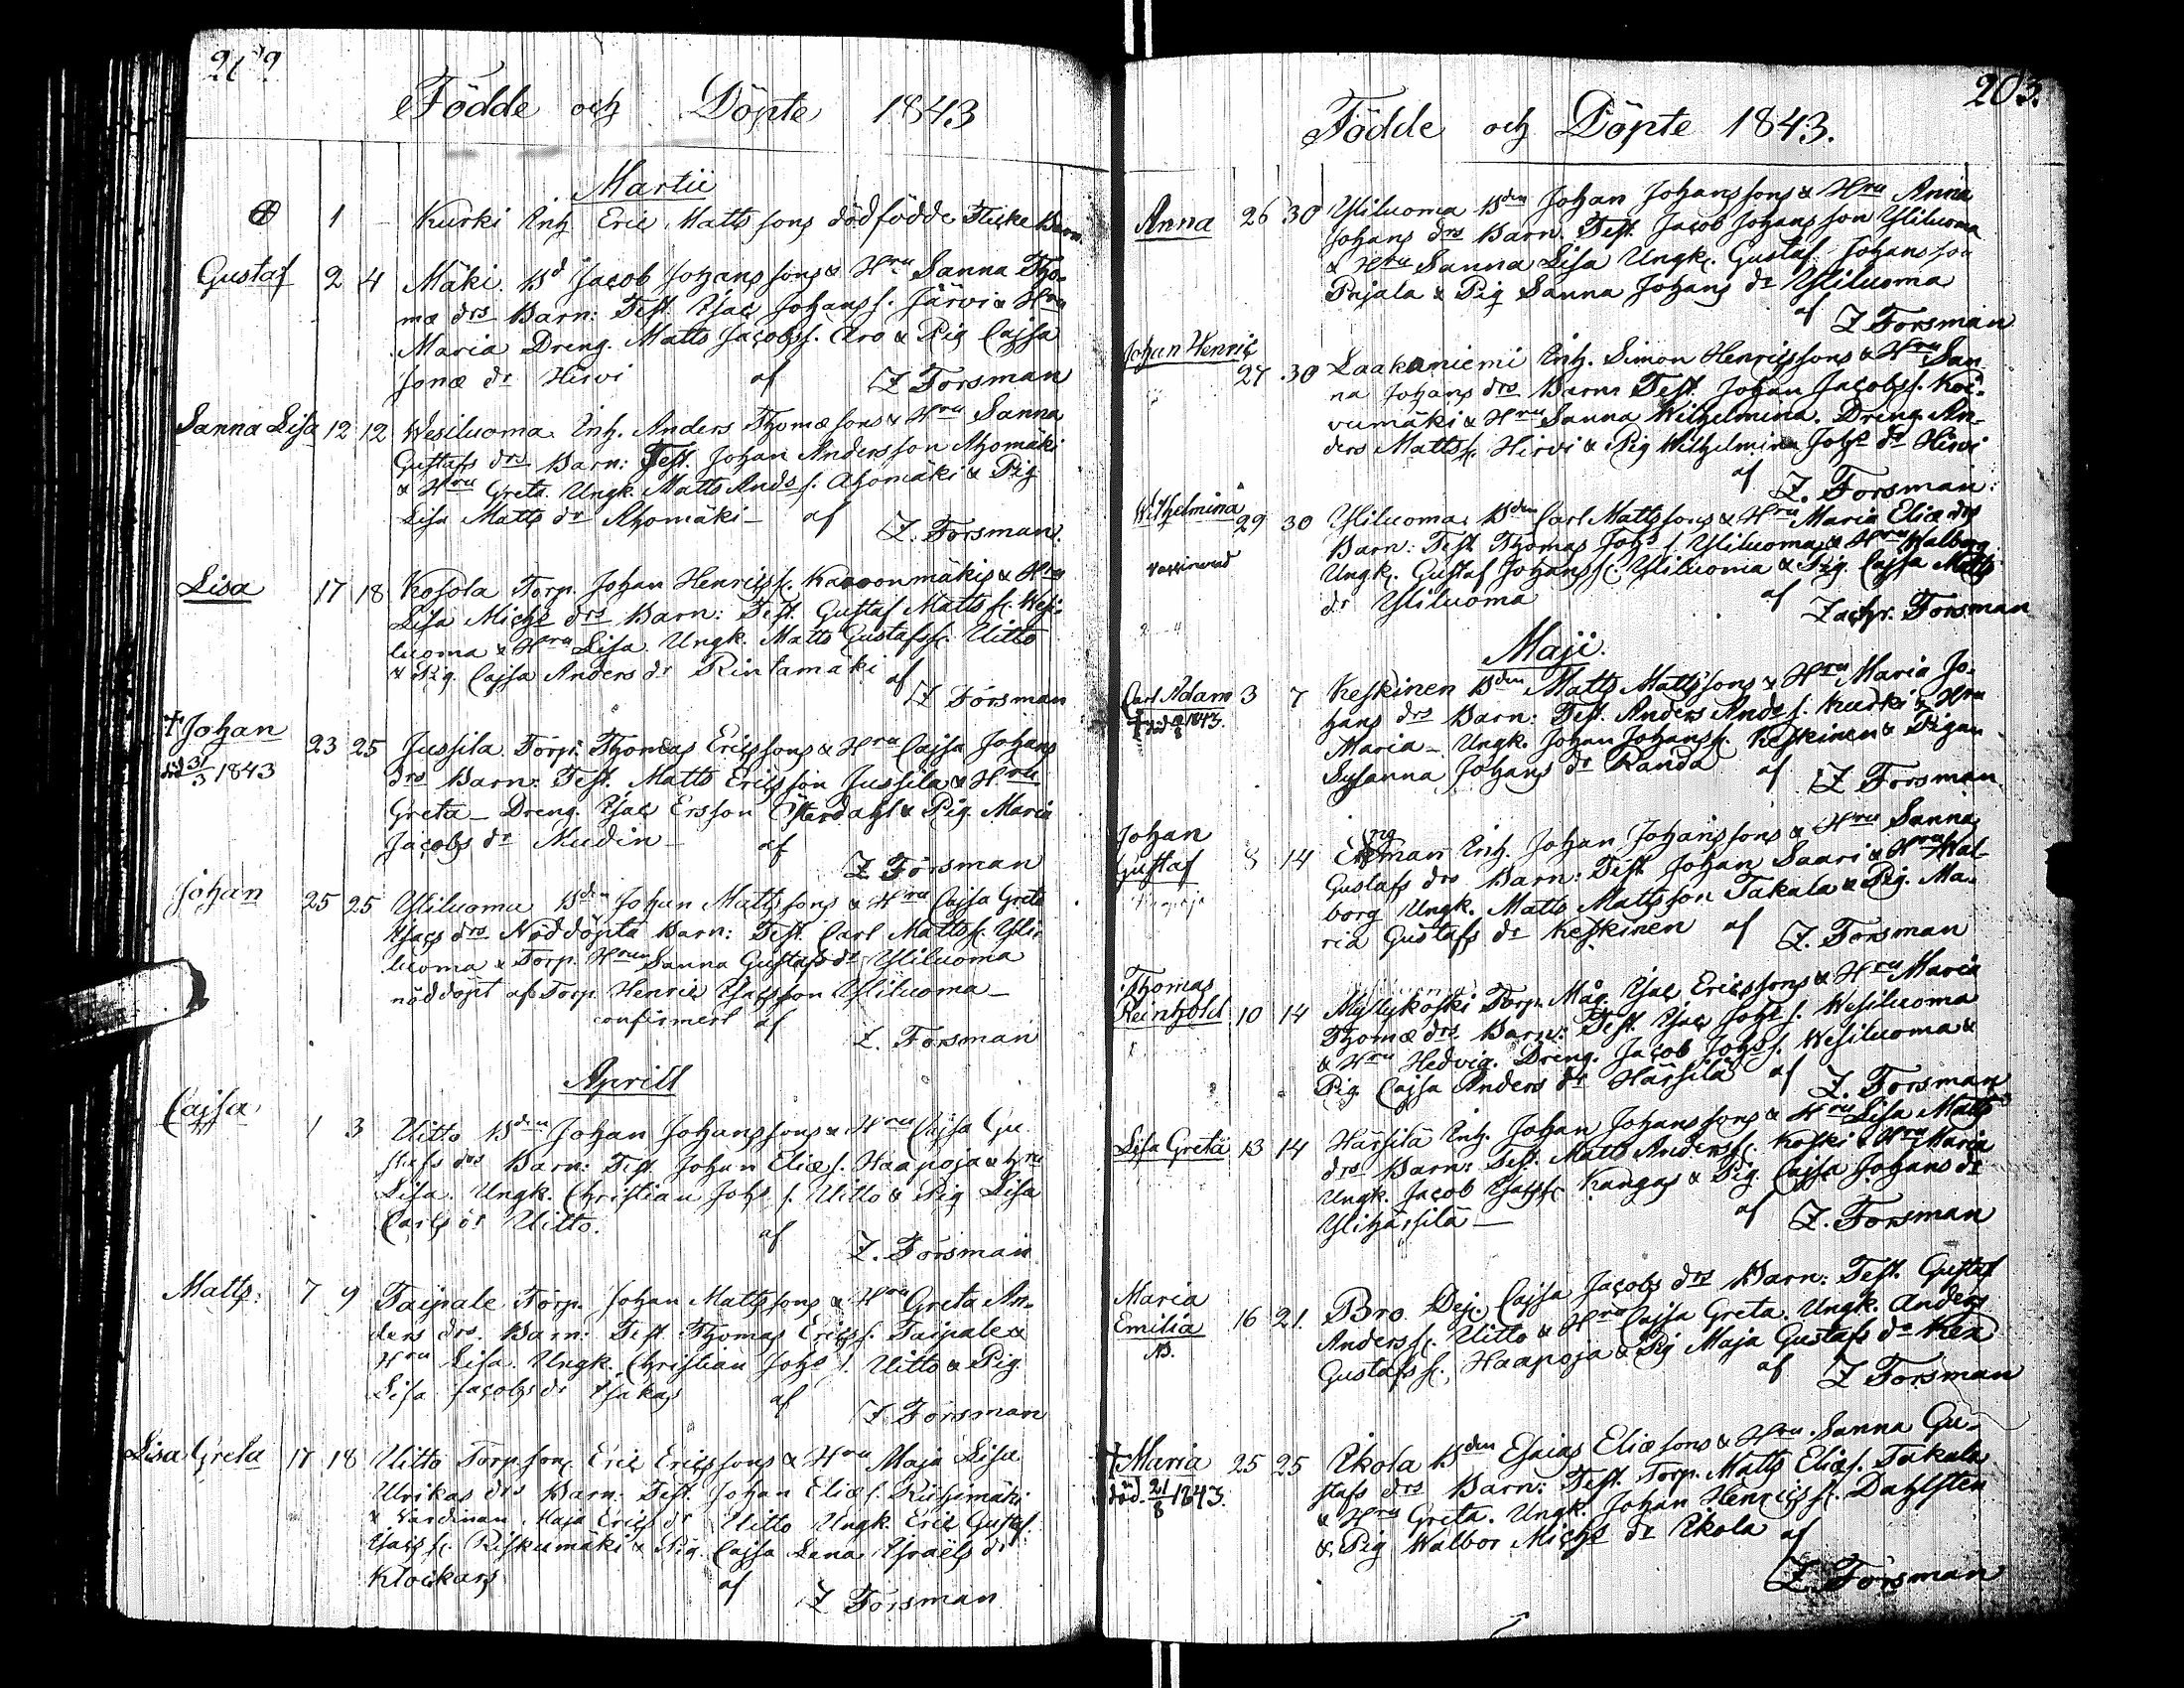 Födde och Döpte 1843
Martii
1 Kurki Inh Eric Matts sons dödfödde Flicke Barn
Gustaf 2 4 Mäki Bd Jacob Johans sons & Hru Sanna Tho-
mæ drs Barn: Test. Isac Johans s. Järvi & Hru
Maria Dreng. Matts Jacobs s. Aro & Pig Cajsa
Jonæ dr Hirvi af Z Forsman
Sanna Lisa 12 12 Wesiluoma Inh. Anders Thomæ sons & Hru Sanna
Gustafs drs Barn: Test. Johan Andersson Ahomäki
& Hru Greta. Ungk. Matts Ands s. Ahomäki & Pig
Lisa Matts dr Ahomäki — af Z. Forsman.
Lisa 17 18 Kosola Torp. Johan Henrics s. & Hru
Lisa Michs drs Barn: Test. Gustaf Matts s. Wesi-
luoma & Hru Lisa. Ungk. Matts Gustafs s. Uitto
& Pig. Cajsa Anders dr Rintamäki af
Z Forsman
† Johan 23 25 Jussila Torp. Thomas Erics sons & Hru Cajsa Johans
död 31/3 1843 drs Barn: Test. Matts Ericsson Jussila & Hru
Greta — Dreng. Isac Ersson Österdahl & Pig. Maria
Jacobs dr Nudin — af
Z Forsman
Johan 25 25 Yliluoma Bden Johan Matts sons & Hru Cajsa Greta
Isacs drs Nöddöpta Barn: Test. Carl Matts s. Yli-
luoma & Torp. Hrun Sanna Gustafs dr Yliluoma
nöddöpt af Torp. Henric Isacsson Yliluoma —
confirmert af Z. Forsman
Aprill
Cajsa 1 3 Uitto Bden Johan Johans sons & Hru Cajsa Gu-
stafs drs Barn: Test. Johan Eliæ s. Haapoja & Hru
Lisa. Ungk. Christian Johs s. Uitto & Pig Lisa
Carls dr Uitto. af Z. Forsman
Matts. 7 9 Taipale Torp. Johan Matts sons & Hru Greta An-
ders drs. Barn: Test. Thomas Erics s. Taipale &
Hru Lisa. Ungk. Christian Johs s. Uitto & Pig
Lisa Jacobs dr Isakas af Z. Forsman
Lisa Greta 17 18 Uitto Torp son Eric Erics sons & Hru Maja Lisa
Ulrikas drs Barn. Test. Johan Eliæ s. Riihimäki
& Värdinan Maja Erics dr Uitto Ungk. Eric Gustaf
Isacs s. Riskumäki & Pig. Cajsa Lena Israels dr
Klockars af Z Forsman
203.
Födde och Döpte 1843.
Anna 26 30 Yliluoma Bden Johan Johans sons & Hru Anna
Johans drs Barn. Test. Jacob Johans son Yliluoma
& Hru Sanna Lisa Ungk. Gustaf Johansson
Pajala & Pig Sanna Johans dr Yliluoma
af Z Forsman
Johan Henric 27 30 Laakaniemi Inh. Simon Henrics sons & Hru San-
na Johans drs Barn: Test. Johan Jacobs s. Koi-
vumäki & Hru Sanna Wilhelmina. Dreng. An-
ders Matts s. Hirvi & Pig Wilhelmina Johs dr Hirvi
af Z. Forsman.
Wilhelmina 29 30 Yliluoma Bden Carl Matts sons & Hru Maria Eliæ drs
vaccinerad Barn: Test. Thomas Johs s. Yliluoma & Hru Walborg
Ungk. Gustaf Johans s. Yliluoma & Pig. Cajsa Matts
dr Yliluoma af Zachr. Forsman
Maji.
Carl Adam 3 7 Keskinen Bden Matts Matts sons & Hru Maria Jo-
† död 1843. hans drs Barn: Test. Anders Ands s. Kurki & Hru
Maria — Ungk. Johan Johans s. Keskinen & Pigan
Susanna Johans dr Randa af Z Forsman
Johan
Gustaf 8 14 Engman Inh. Johan Johans sons & Hru Sanna
Gustafs drs Barn: Test. Johan Saari & Hru Wal-
borg Ungk. Matts Mattsson Takala & Pig. Ma-
ria Gustafs dr Keskinen af Z. Forsman
Thomas
Reinhold 10 14 Myllykoski Torp. Måg. Isac Erics sons & Hru Maria
Thomæ drs. Barn: Test. Isac Johs s. Wesiluoma
& Hru Hedvig. Dreng. Jacob Johs s. Wesiluoma &
Pig Cajsa Anders dr Härsilä af Z. Forsman
Lisa Greta 13 14 Härsilä Inh. Johan Johans sons & Hru Lisa Matts
drs Barn: Test. Matts Anders s. Koski & Hru Maria
Ungk. Jacob Isacs s. Kangas & Pig Cajsa Johans dr
Ylihärsilä — af Z. Forsman
Maria
Emilia 16 21. Bro Dej. Cajsa Jacobs drs Barn: Test. Gustaf
Anders s. Uitto & Hru Cajsa Greta. Ungk. Anders
Gustafs s. Haapoja & Pig Maja Gustafs dr
af Z Forsman
† Maria 25 25 Ikola Bden Esaias Eliæ sons & Hru Sanna Gu-
död 21/8 1843. stafs drs Barn: Test. Torp. Matts Eliæ s. Takala
& Hru Greta. Ungk. Johan Henrics s. Dahlsten
& Pig Walbor Michs dr Ikola af
Z. Forsman